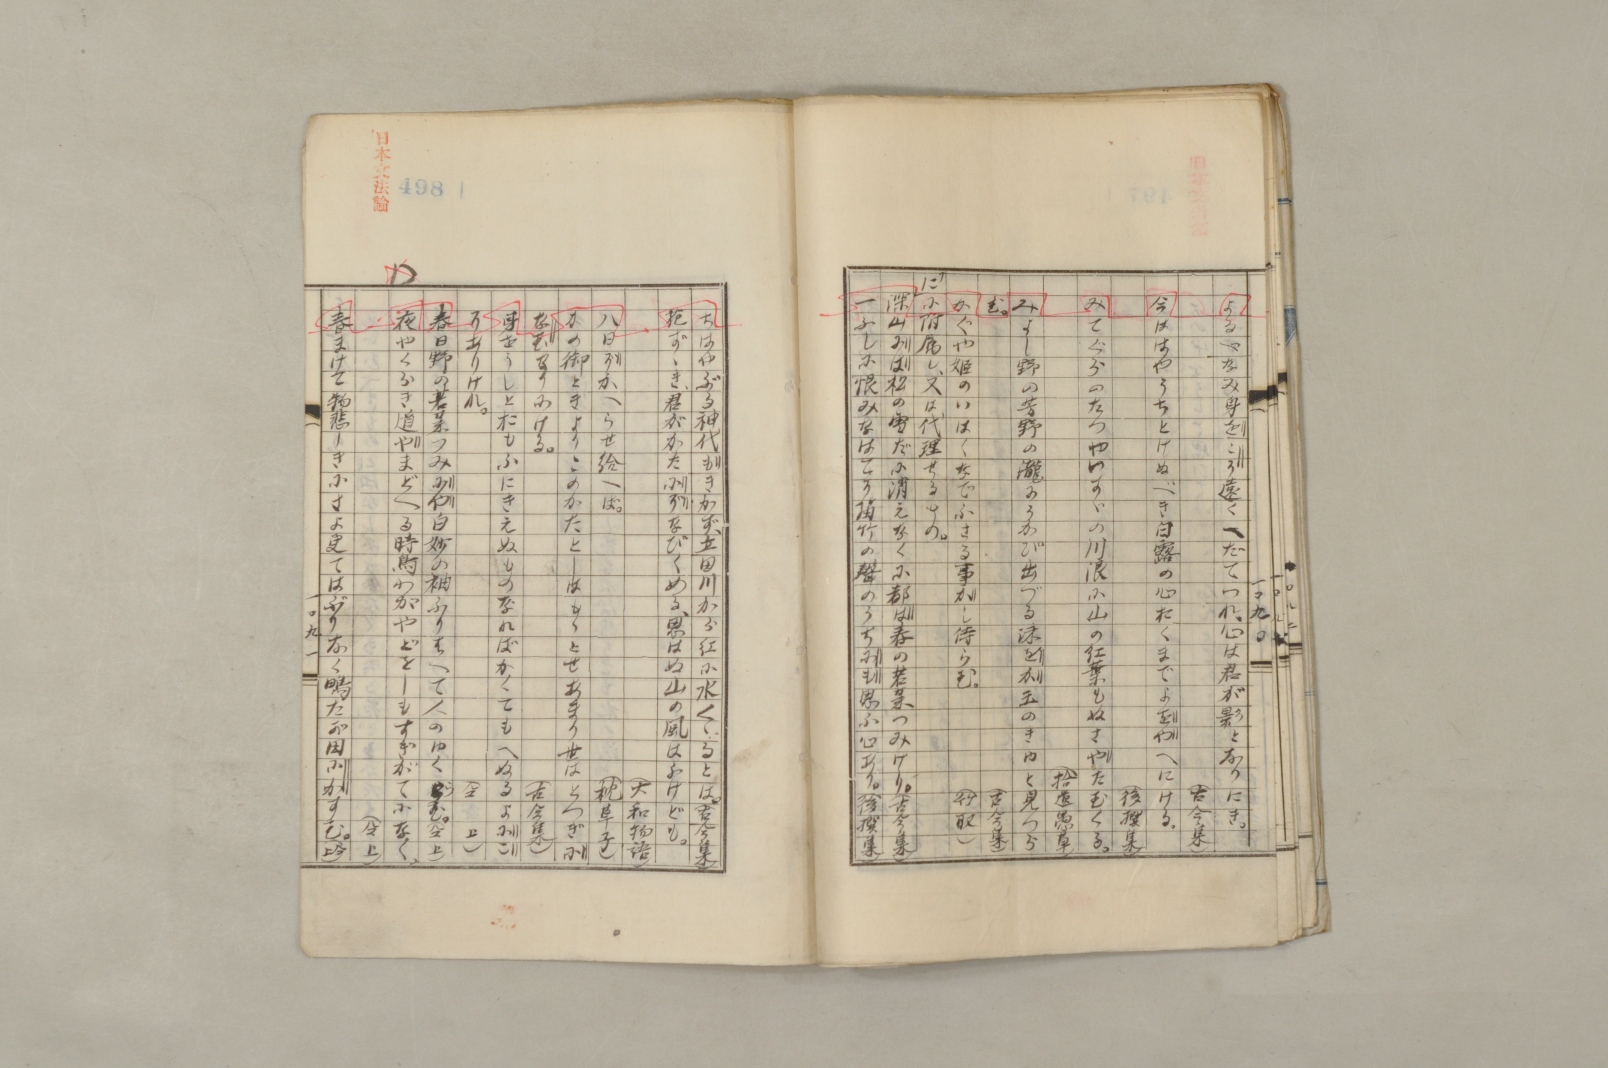 よるべなみ身をこそ遠くへだてつれ、心は君が影となりにき。
(古今集)
今ははやうちとけぬべき白露の心おくまでよをやへにける。
(後撰集)
みてぐらのたつやいすゞの川浪に山の紅葉もぬさやたむくる。
(拾遺愚草)
みよし野の芳野の瀧にうかび出づる沫をか玉のきゆと見つら
む。
(古今集)
かぐや姫のいはくなでふさる事かし侍らむ。
(竹取)
に
に附属し、又は代理せるもの。
深山には松の雪だに消えなくに都は春の若菜つみけり。(古今集)
一ふしに恨みなはてそ笛竹の聲のうちにも思ふ心あり。(後撰集)
一〇九〇
日本文法論
498
ちはやぶる神代もきかず、立田川から紅に水くゝるとは。(古今集)
花すゝき、君がかたにぞなびくめる、思はぬ山の風はふけども。
(大和物語)
八日ぞかへらせ給へば。
(枕草子)
かの御ときよりこのかたとしはもゝとせあまり世はとつぎに
なむなりにける。
(古今集)
身をうしとおもふにきえぬものなればかくてもへぬるよにこ
そありけれ。
(仝上)
春日野の若菜つみにや白妙の袖ふりはへて人のゆくらむ。(仝上)
夜やくらき道やまどへる時鳥わがやどをしもすぎがてになく。
(仝上)
春まけて物悲しきにさよ更てはぶりなく鴫たが田にかすむ。
一〇九一